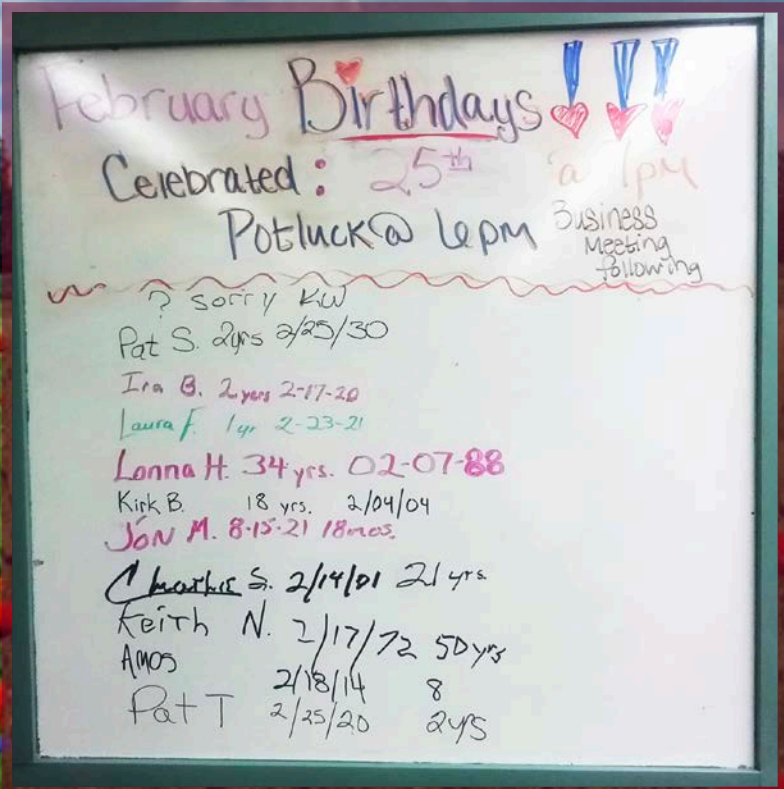 February Birthdays!!!
Celebrated: 25th @ 7pm
Potluck @ 6pm Business
Meeting
following
? Sorry KW
Pat S. 2yrs 2/25/30
Ira B. 2 years 2-17-20
Laura F. 1yr 2-23-21
Lonna H. 34 yrs. 02-07-88
Kirk B. 18 yrs. 2/04/04
JON M. 8-15-21 18mos.
S. 2/14/01 21 yrs.
Keith N. 2/17/72 50 yrs
AMOS 2/18/14 8
Pat T 2/25/20 2yrs